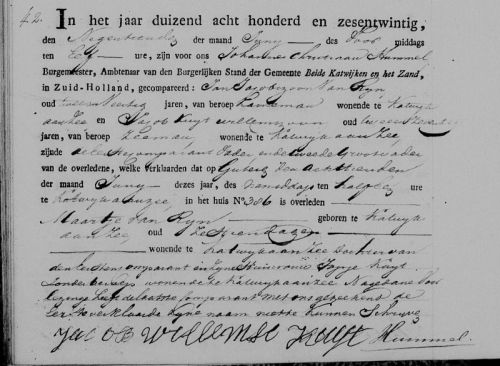 42.
In het jaar duizend acht honderd en zesentwintig,
den Negentienden der maand Juny des Voor middags
ten Elf ure, zijn voor ons Johannes Christiaan Hummel
Burgemeester, Ambtenaar van den Burgerlijken Stand der Gemeente Beide Katwijken en het Zand,
in Zuid-Holland, gecompareerd: Jan Jacobszoon Van Ryn
oud jaren, van beroep wonende te Katwyk
aan Zee en Jacob Kuyt Willemszoon oud
jaren, van beroep Zeeman wonende te Katwyk aan Zee
zijnde de eerste comparant Vader en de tweede Grootvader
van de overledene, welke verklaarden dat op Gisteren den Achttienden
der maand Juny dezes jaar, des middags ten half ure
te Katwyk aan Zee in het huis No. 386 is overleden
Maartje Van Ryn geboren te Katwyk
aan Zee oud Zestien dagen
wonende te Katwyk aan Zee Dochter van
den eersten comparant en zyne Huisvrouw Kuyt
Zonder beroep wonende te Katwyk aan Zee Na gedane Voor
lezing heeft de laatste Comparant met ons geteekend de
Eerste verklaarde zyne naam niet te kunnen Schryve
Jacob Willemse Kuyt Hummel